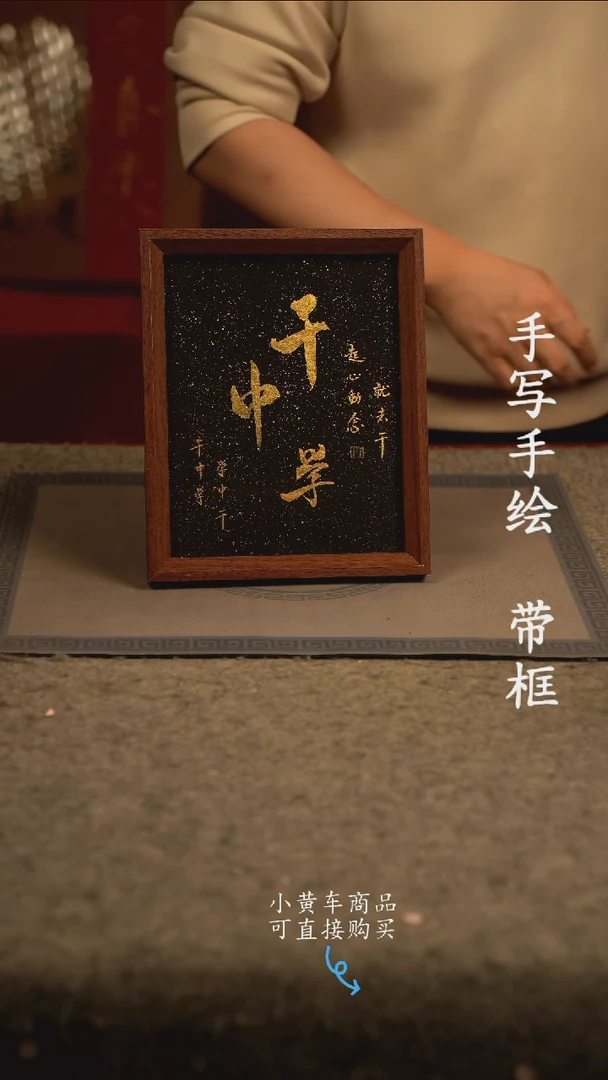 干中学
起心动念
就去干
干中学
学中干
手写手绘 带框
小黄车商品
可直接购买